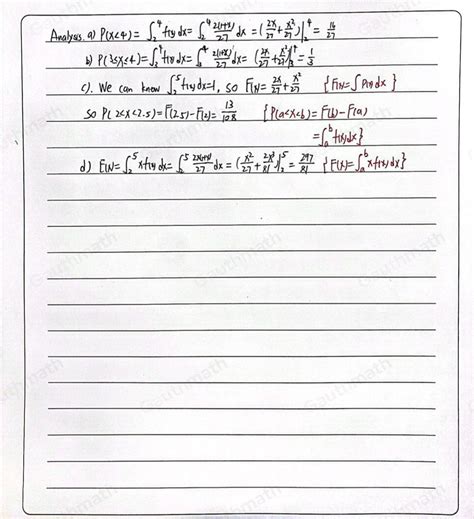 Analysis. a) P(X<4) = ∫₂⁴ f(x) dx = ∫₂⁴ 2(1+x)/27 dx = (2x/27 + x²/27)|₂⁴ = 16/27
b) P(3≤X<4) = ∫₃⁴ f(x) dx = ∫₃⁴ 2(1+x)/27 dx = (2x/27 + x²/27)|₃⁴ = 1/3
c). We can know ∫₂⁵ f(x) dx = 1, so F(x) = 2x/27 + x²/27 {F(x) = ∫ P(x) dx}
so P(2<X<2.5) = F(2.5) - F(2) = 13/108 {P(a<X<b) = F(b) - F(a)
= ∫ₐᵇ f(x) dx}
d) E(x) = ∫₂⁵ x f(x) dx = ∫₂⁵ 2x(1+x)/27 dx = (x²/27 + 2x³/81)|₂⁵ = 297/81 {E(x) = ∫ₐᵇ x f(x) dx}
Gauthmath